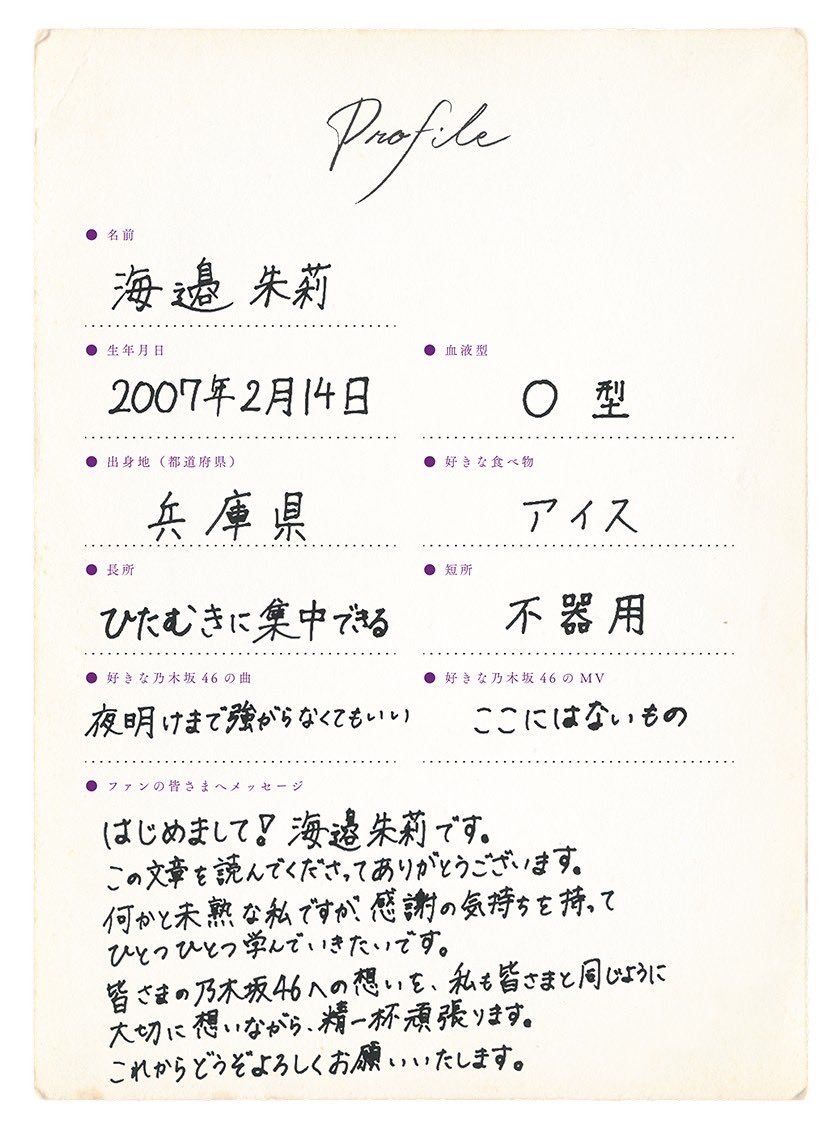 Profile
● 名前
海邉 朱莉
● 生年月日
● 血液型
2007年2月14日
O 型
● 出身地（都道府県）
● 好きな食べ物
兵庫県
アイス
● 長所
● 短所
ひたむきに集中できる
不器用
● 好きな乃木坂46の曲
● 好きな乃木坂46のMV
夜明けまで強がらなくてもいい
ここにはないもの
● ファンの皆さまへメッセージ
はじめまして! 海邉朱莉です。
この文章を読んでくださってありがとうございます。
何かと未熟な私ですが、感謝の気持ちを持って
ひとつひとつ学んでいきたいです。
皆さまの乃木坂46への想いを、私も皆さまと同じように
大切に想いながら、精一杯頑張ります。
これからどうぞよろしくお願いいたします。